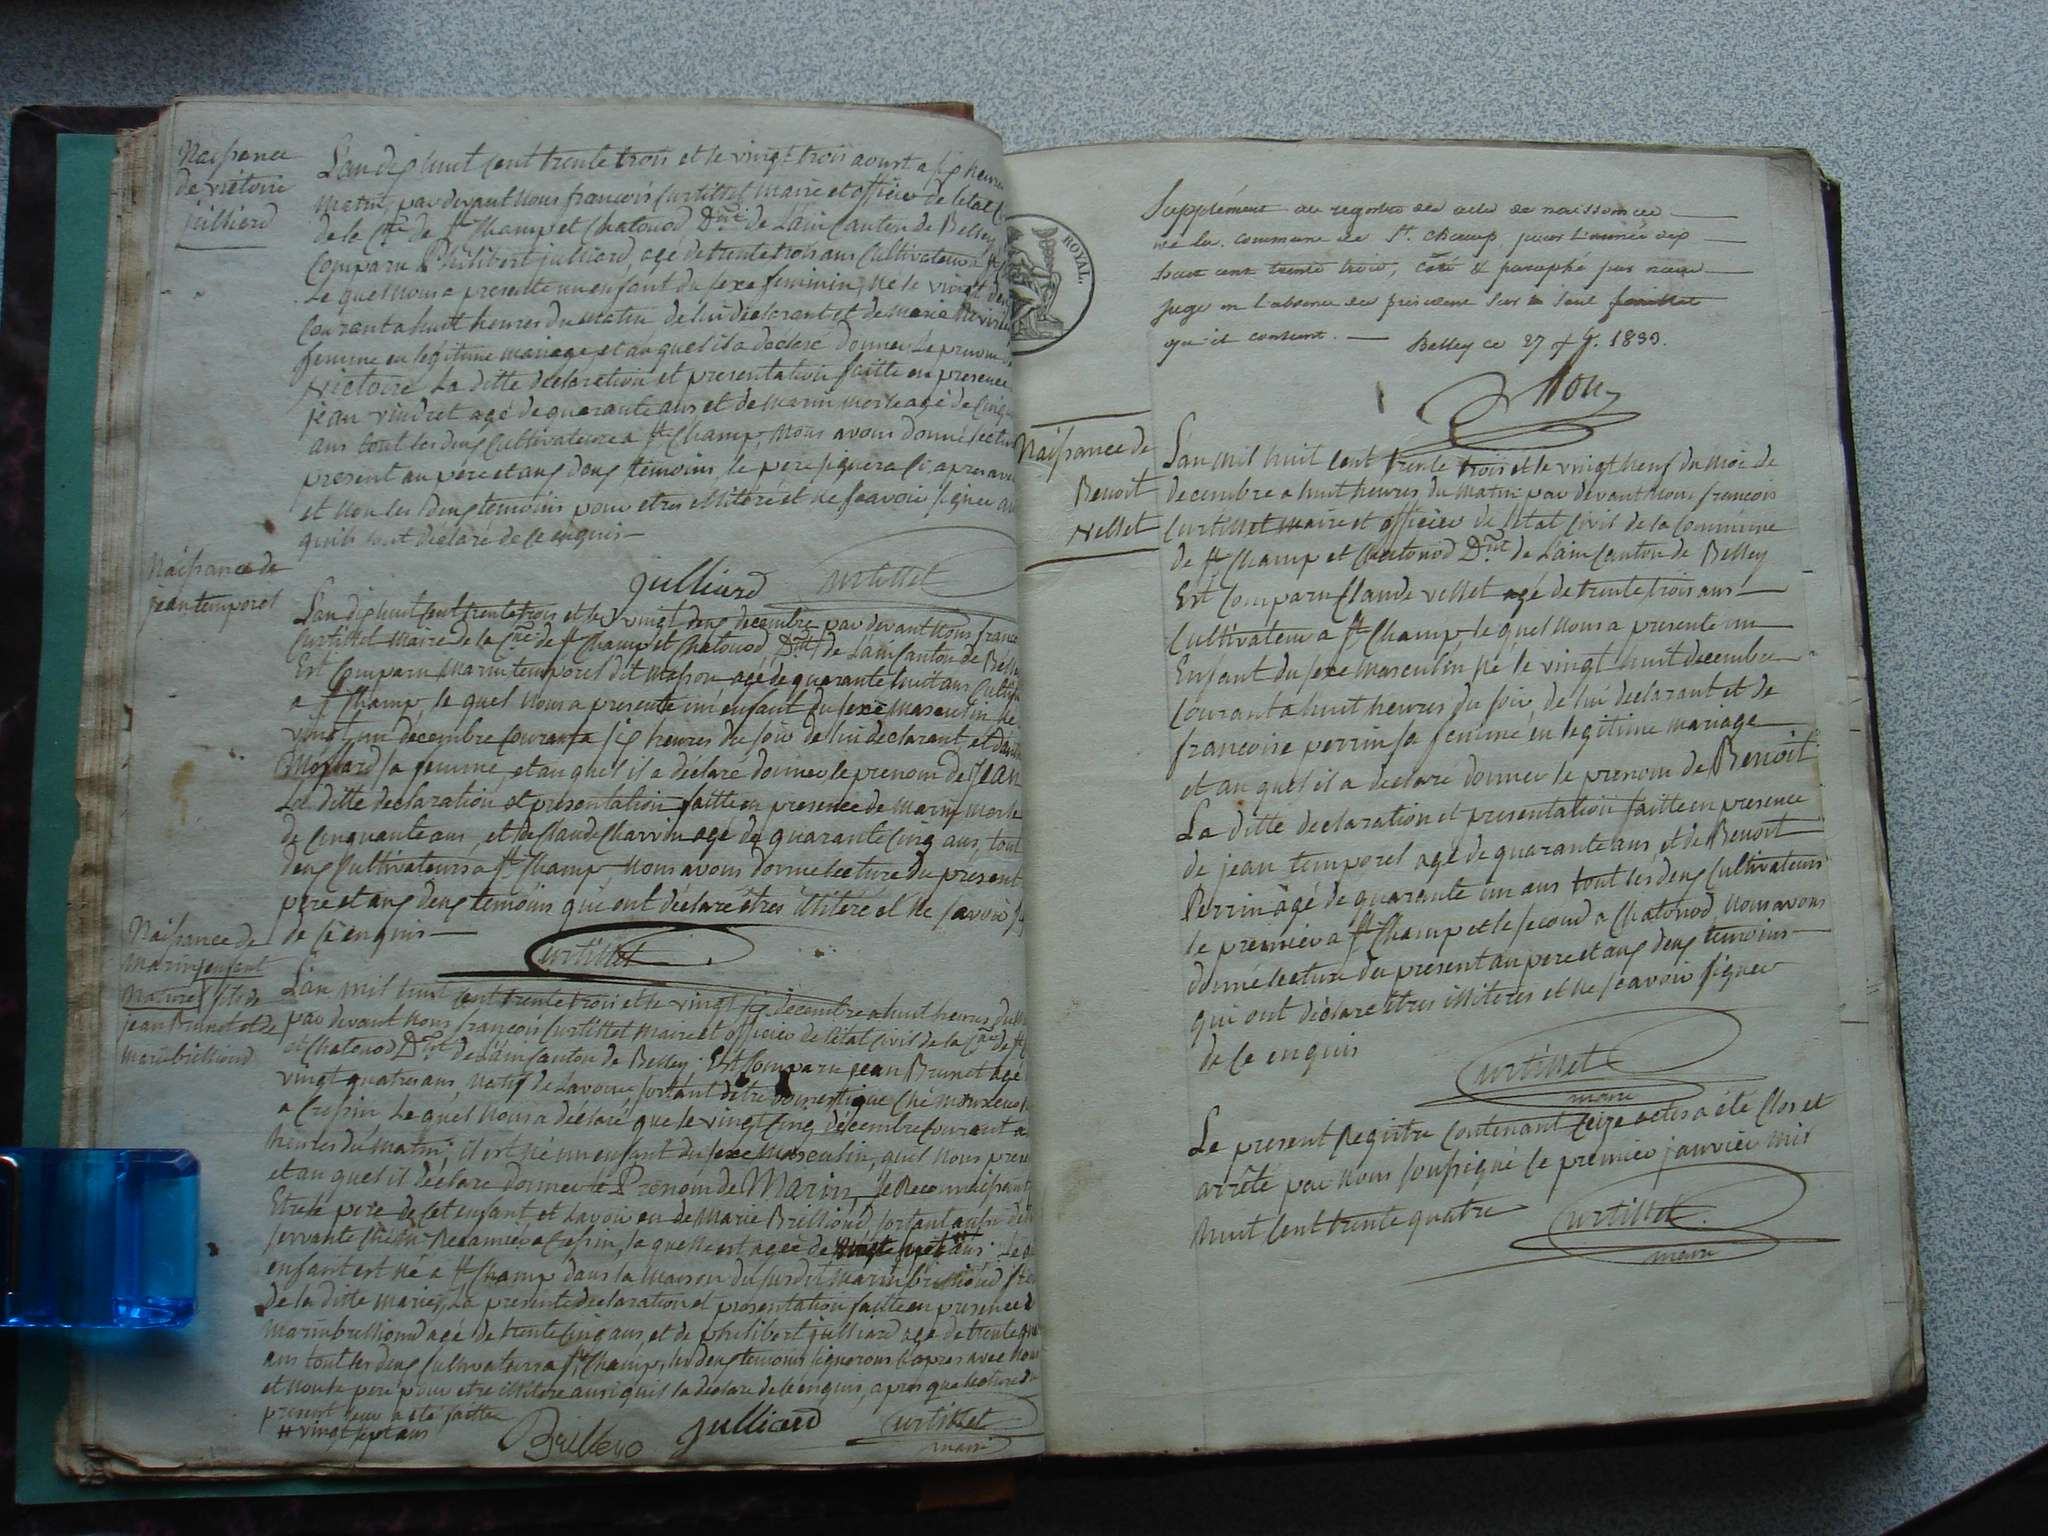 Naissance
de victoire
julliard
L'an dix huit cent trente trois et le vingt trois aoust a six heures
matin par devant nous françois Curtillet maire et officier de letat
de la Cne de St Champ et Chatonod Dmt de Lain Canton de Belley
Comparu Philibert julliard, agé de trente trois ans Cultivateur a St
le quel nous a presenté un enfant du sexe feminin, né le vingt deux
Courant a huit heures du matin de lui declarant et de marie
femme en legitime mariage, et au quel il a déclaré donner le prenom de
victoire La ditte declaration et presentation faitte en presence
jean vindret agé de quarante ans et de marin morle agé de Cinq
ans tout les deux Cultivateurs a St Champ, Nous avons donné lecture
present au pere et aux deux temoins, le pere signera Ci apres avec
et non les deux temoins pour etres illitéré et ne scavoir signer
quils ont déclaré de ce enquis
julliard Curtillet
Naissance de
jean temporel
L'an dix huit cent trente trois et le vingt deux decembre par devant nous franc
Curtillet maire de la Cne de St Champ et Chatonod Dmt de Lain Canton de Belley
Est Comparu marin temporel dit masson agé de quarante huit ans Cultiv
a St Champ, le quel nous a presenté un enfant du sexe masculin né
vingt un décembre Courant a six heures du soir de lui declarant et
Mollard sa femme, et au quel il a déclaré donner le prenom de jean
La ditte declaration et présentation faitte en presence de marin morle
de Cinquante ans, et de Claude Charvin agé de quarante Cinq ans, tout
deux Cultivateurs a St Champ Nous avons donné lecture du present
pere et aux deux temoins qui ont déclaré êtres illitéré et ne scavoir
de ce enquis
Curtillet
Naissance de
Marin enfant
Naturel fils de
jean Brunet et de
marie brilliond
L'an mil huit cent trente trois et le vingt six decembre a huit heures du
par devant nous françois Curtillet maire et officier de l'état Civil de la Cne de St
et Chatonod Dmt de Lain Canton de Belley Est Comparu jean Brunet agé
vingt quatre ans, natif de Lavours, sortant detre domestique ché
a Cressin Le quel nous a déclaré que le vingt Cinq décembre Courant a
heures du matin, il est né un enfant du sexe masculin, quil nous
et au quel il déclare donner le Prénom de Marin, se Reconnaissant
Etre le pere de Cet enfant et Lavoir eu de Marie Brilliond, sortant aussi
servante ché Recamier a Cressin, la quelle est agée de vingt sept ans
enfant est né a St Champ dans la maison du susdit marin brilliond
De la ditte marie, La presente declaration et presentation faitte en presence de
marin brilliond agé de trente Cinq ans et de philibert julliard agé de trente
ans tout les deux Cultivateurs a St Champ, les deux temoins signerons Ci apres avec nous
et non le pere pour etre illitere ainsi quil la declare de ce enquis, apres que lecture du
present leur a été faitte
# vingt sept ans
Brilliond julliard Curtillet
maire
ROYAL.
Supplément au registre des actes de naissances
de la commune de St. Champ, pour l'année dix
huit cent trente trois, coté & paraphé par nous
juge en l'absence du président sur le seul feuillet
qu'il contient. Belley ce 27 Xbre 1833.
Naissance de
Benoit
Vellet
L'an mil huit cent trente trois et le vingt neuf du mois de
decembre a huit heures du matin par devant nous françois
Curtillet maire et officier de l'état Civil de la Commune
de St Champ et Chatonod Dmt de Lain Canton de Belley
Est Comparu Claude vellet agé de trente trois ans
Cultivateur a St Champ, le quel nous a presenté un
Enfant du sexe masculin né le vingt huit decembre
Courant a huit heures du soir, de lui declarant et de
francoise perrin sa femme en legitime mariage
et au quel il a déclaré donner le prenom de Benoit
La ditte declaration et presentation faitte en presence
de jean temporel agé de quarante ans et de Benoit
Perrin agé de quarante un ans tout les deux Cultivateurs
le premier a St Champ et le second a Chatonod, Nous avons
donné lecture du present au pere et aux deux temoins
qui ont déclaré êtres illiteres et ne scavoir signer
de Ce enquis
Curtillet
maire
Le present Registre Contenant seize actes a été Clos et
arrêté par nous soussigné le premier janvier mil
huit Cent trente quatre
Curtillet
maire